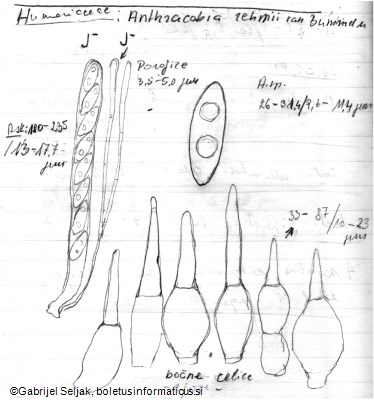 Humariaceae: Anthracobia rehmii van Brummelen
J⁻ J⁻
Parafize
3,5-5,0 μm
Aski: 180-235
/13-17,7
μm
A.sp.
26-31,4/9,6-11,4 μm
33-87
/10-23
μm
bočne celice
©Gabrijel Seljak, boletusinformaticus.si